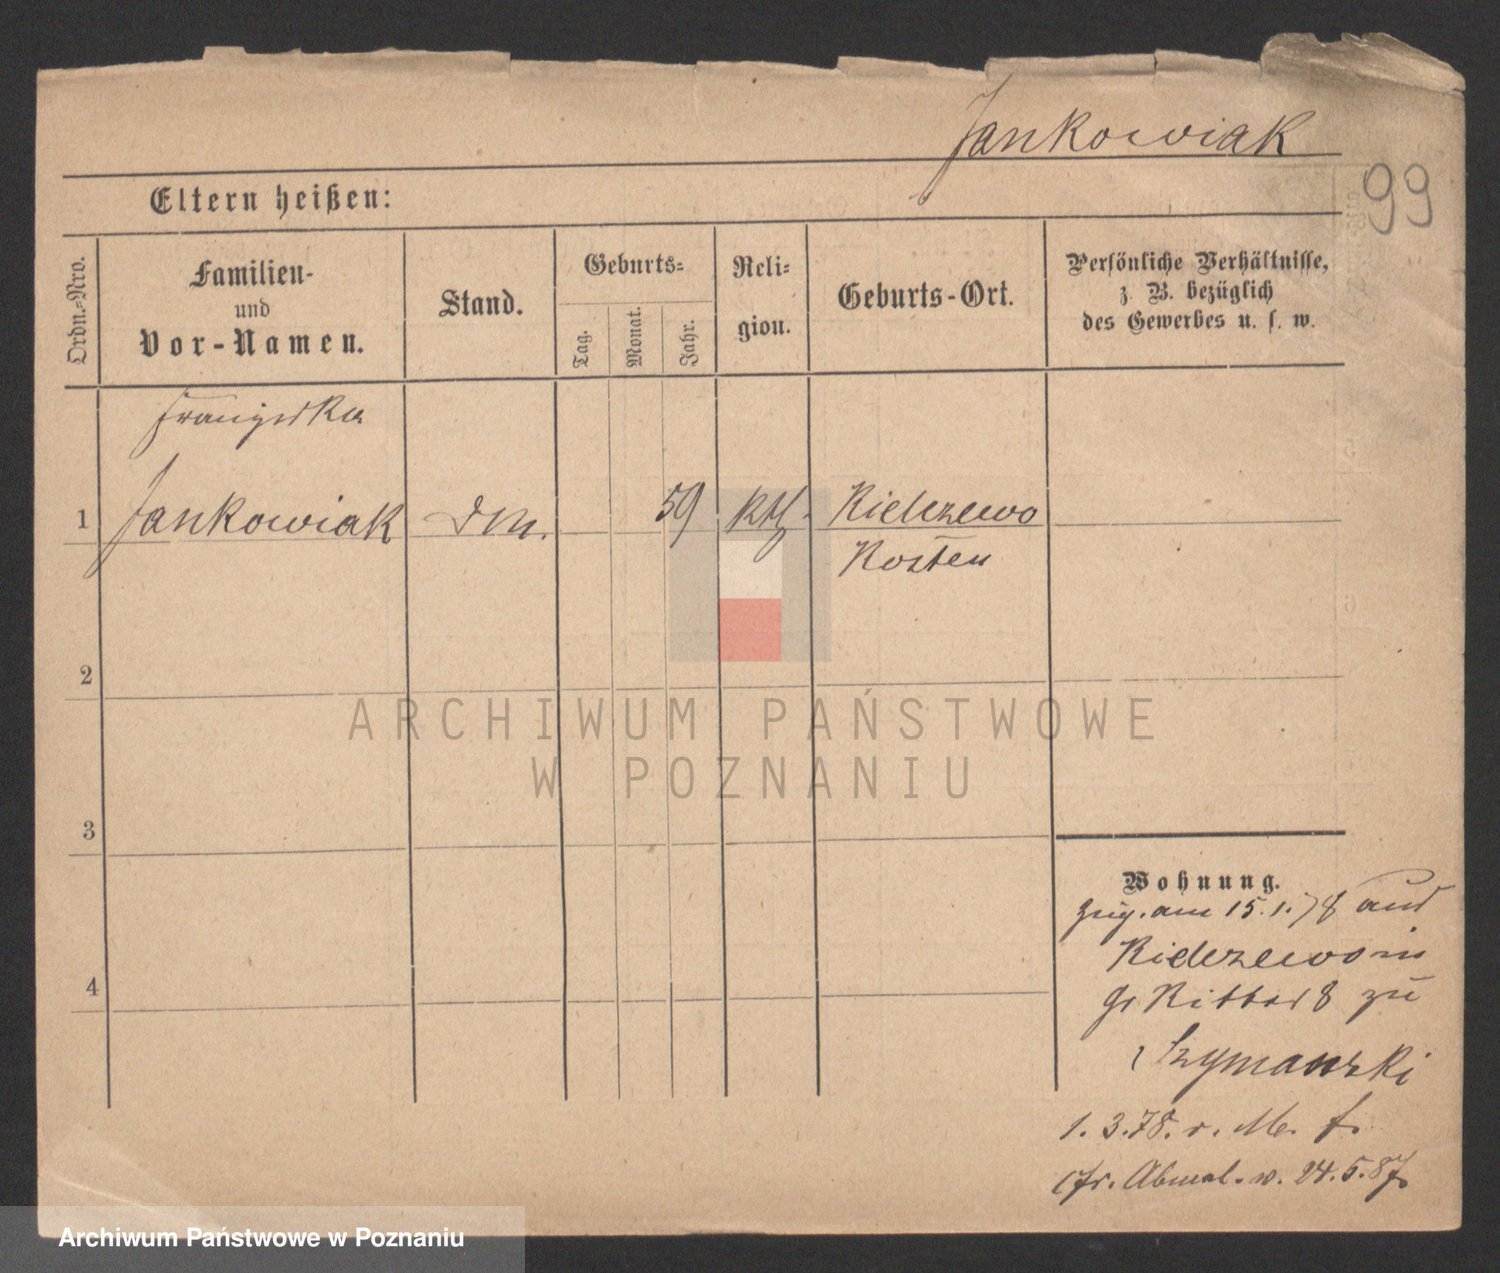 Jankowiak
99
Eltern heißen:
Ordn.-Nro.
Familien-
und
Vor-Namen.
Stand.
Geburts-
Tag.
Monat.
Jahr.
Reli-
gion.
Geburts-Ort.
Persönliche Verhältnisse,
z. B. bezüglich
des Gewerbes u. s. w.
Franziska
1 Jankowiak 59 Kth. Kielczewo
Kosten
2
3
4
Wohnung.
Zug. am 15.1.78 aus
Kielczewo in
Gr Ritter 8 zu
Szymanski
1. 3. 78. v. M.
cfr. Abmel. v. 24.5.87
ARCHIWUM PAŃSTWOWE
W POZNANIU
Archiwum Państwowe w Poznaniu